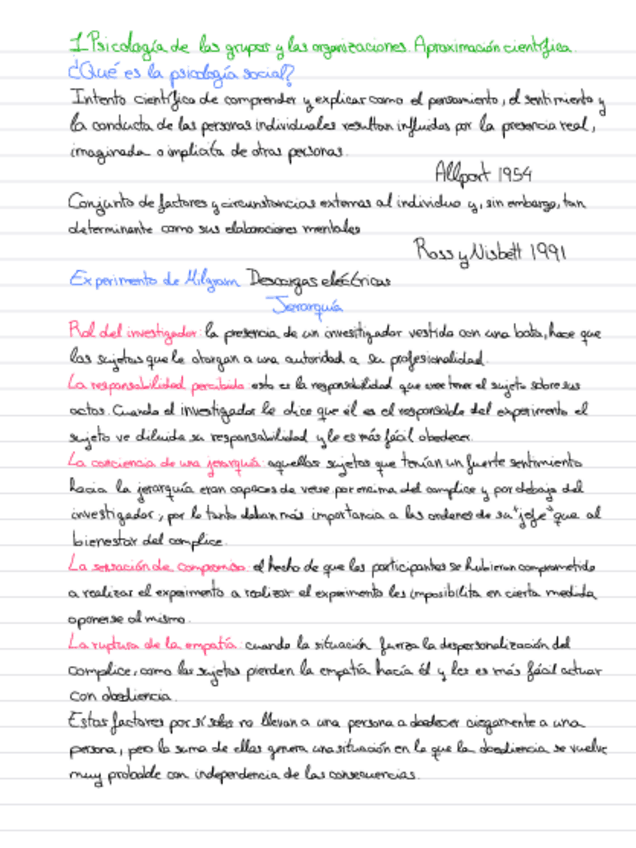 1. Psicología de los grupos y las organizaciones. Aproximación científica.
¿Qué es la psicología social?
Intento científico de comprender y explicar como el pensamiento, el sentimiento y
la conducta de las personas individuales resultan influidos por la presencia real,
imaginada o implícita de otras personas.
Allport 1954
Conjunto de factores y circunstancias externas al individuo y, sin embargo, tan
determinante como sus elaboraciones mentales
Ross y Nisbett 1991
Experimento de Milgram Descargas eléctricas
Jerarquía
Rol del investigador: la presencia de un investigador vestido con una bata, hace que
los sujetos que le otorgan a una autoridad a su profesionalidad.
La responsabilidad percibida: esta es la responsabilidad que cree tener el sujeto sobre sus
actos. Cuando el investigador le dice que él es el responsable del experimento el
sujeto ve diluida su responsabilidad y le es más fácil obedecer.
La conciencia de una jerarquía: aquellos sujetos que tenían un fuerte sentimiento
hacia la jerarquía eran capaces de verse por encima del complice y por debajo del
investigador, por lo tanto daban más importancia a las ordenes de su "jefe" que al
bienestar del complice.
La sensación de compromiso: el hecho de que los participantes se hubieran comprometido
a realizar el experimento a realizar el experimento les imposibilita en cierta medida
oponerse al mismo.
La ruptura de la empatía: cuando la situación fuerza la despersonalización del
complice, como los sujetos pierden la empatía hacía él y les es más fácil actuar
con obediencia.
Estos factores por sí solos no llevan a una persona a obedecer ciegamente a una
persona, pero la suma de ellas genera una situación en la que la obediencia se vuelve
muy probable con independencia de las consecuencias.